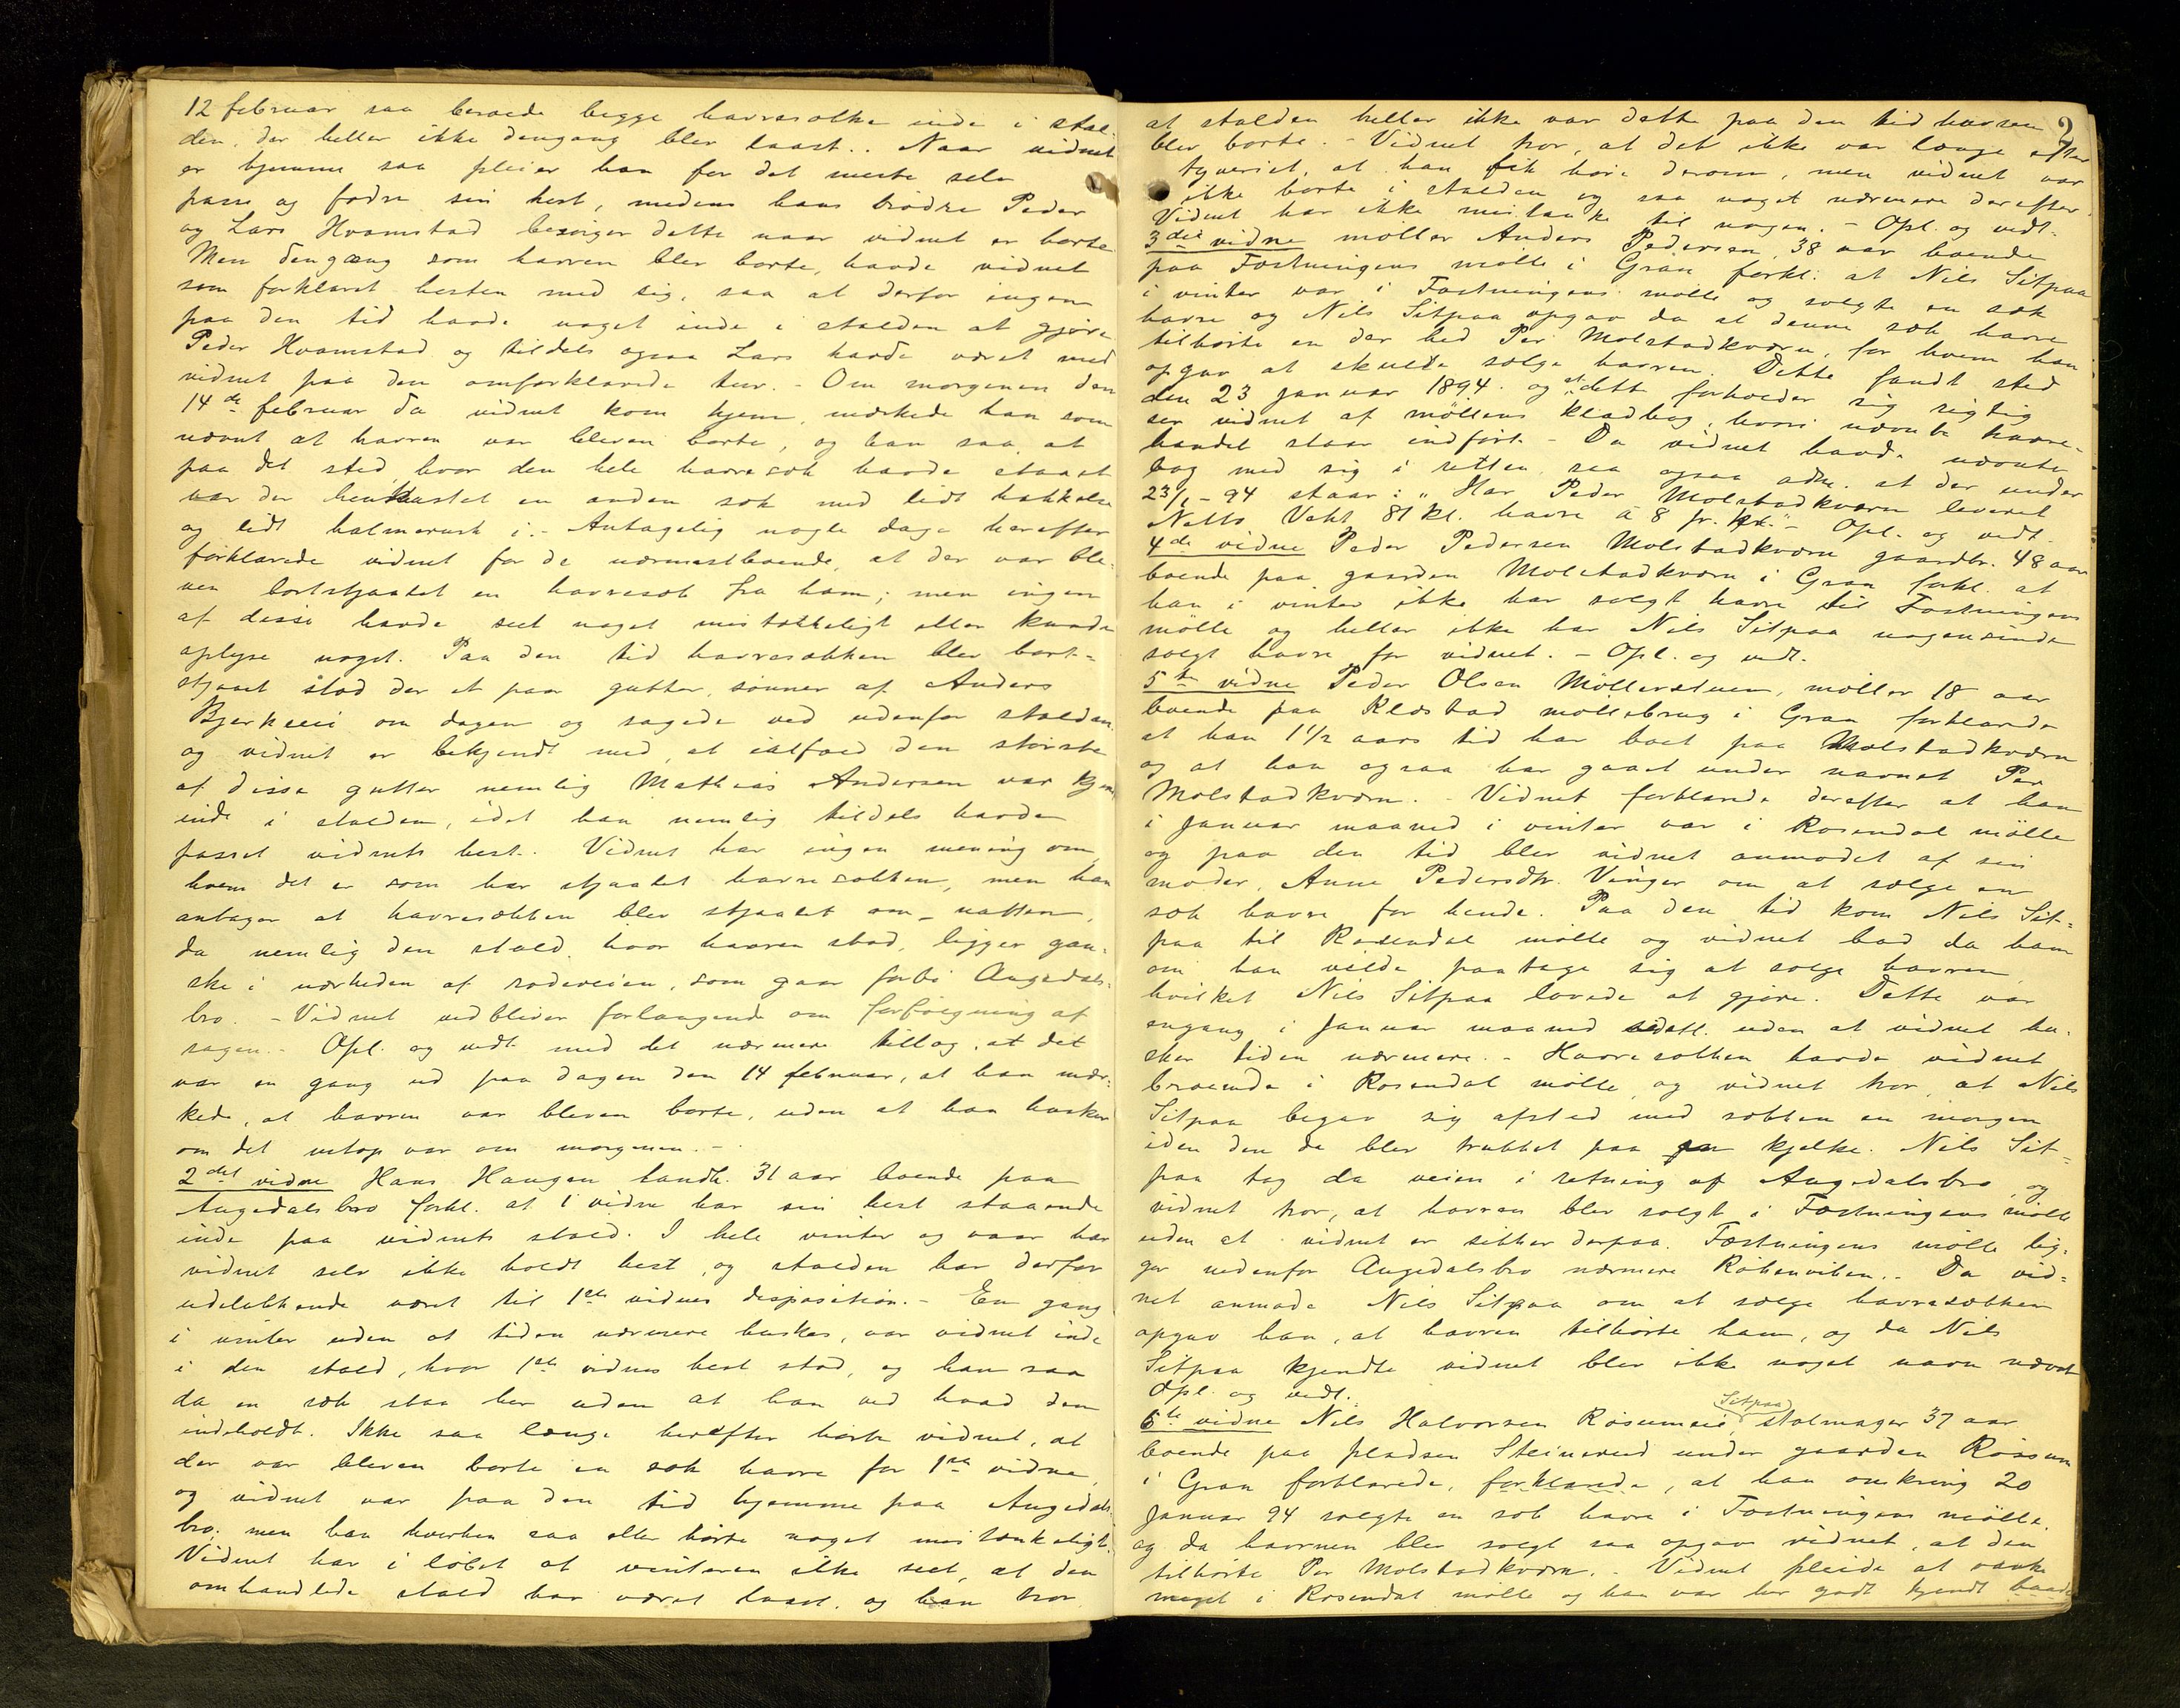 12 februar saa beroede begge havresække inde i stal-
den, der heller ikke dengang blev laast.. Naar vidnet
er hjemme saa pleier han for det meste selv
passe og fodre sin hest, medens hans brødre Peder
og Lars Hvamstad besørger dette naar vidnet er borte
Men dengang som havren blev borte, havde vidnet
som forklaret hesten med sig, saa at derfor ingen
paa den tid havde noget inde i stalden at gjøre
Peder Hvamstad og tildels ogsaa Lars havde været med
vidnet paa den omforklarede tur. - Om morgenen den
14de februar da vidnet kom hjem, mærkede han som
nævnt at havren var bleven borte, og han saa, at
paa det sted, hvor den hele havresæk havde staaet
var der henkastet en anden sæk med lidt hakkelse
og lidt halmerusk i. - Antagelig nogle dage herefter
forklarede vidnet for de nærmestboende, at der var ble-
ven bortstjaalet en havresæk fra ham; men ingen
af disse havde seet noget mistænkeligt eller kunde
oplyse noget. Paa den tid havresækken blev bort=
stjaalet stod der et par gutter, sønner af Anders
Bjerkeeie om dagen og sagede ved udenfor stalden
og vidnet er bekjendt med, at ialfald den største
af disse gutter nemlig Mathias Andersen var kjendt
inde i stalden, idet han nemlig tildels havde
passet vidnets hest. Vidnet har ingen mening om,
hvem det er som har stjaalet havresækken, men han
antager at havresækken blev stjaalet om natten,
da nemlig den stald, hvor havren stod, ligger gan-
ske i nærheden af rodeveien, som gaar forbi Augedals-
bro. - Vidnet vedbliver forlangende om forføigning af
sagen. - Opl. og vedt. med det nærmere tillæg, at det
var en gang ud paa dagen den 14 februar, at han mær-
kede, at havren var bleven borte, uden at han husker
om det netop var om morgenen. -
2det vidne Hans Haugen landh. 31 aar boende paa
Augedalsbro forkl. at 1 vidne har sin hest staaende
inde paa vidnets stald. I hele vinter og vaar har
vidnet selv ikke holdt hest, og stalden har derfor
udelukkende været til 1ste vidnes disposition. - En gang
i vinter uden at tiden nærmere huskes, var vidnet inde
i den stald, hvor 1ste vidnes hest stod, og han saa
da en sæk staa her uden at han ved hvad den
indeholdt. Ikke saa længe herefter hørte vidnet, at
der var bleven borte en sæk havre for 1ste vidne,
og vidnet var paa den tid hjemme paa Augedals-
bro; men han hverken saa eller hørte noget mistænkeligt.
Vidnet har i løbet at vinteren ikke seet, at den
omhandlede stald har været laast, og han tror
2
at stalden heller ikke var dette paa den tid havren
blev borte. - Vidnet tror, at det ikke var længe efter
tyveriet, at han fik høre derom, men vidnet var
ikke borte i stalden og saa noget nærmere derefter.
Vidnet har ikke mistanke til nogen. - Opl. og vedt.
3die vidne møller Anders Pedersen 38 aar boende
paa Fostningens mølle i Gran forkl. at Nils Sitpaa
i vinter var i Fostningens mølle og solgte en sæk
havre og Nils Sitpaa opgav da at denne sæk havre
tilhørte en der hed Per Molstadkværn, for hvem han
opgav at skulde sælge havren. Dette fandt sted
den 23 januar 1894. og at dett forholder sig rigtig
ser vidnet af møllens kladbog, hvori nævnte havre-
handel staar indført. - Da vidnet havde nævnte
bog med sig i retten, saa ogsaa adm. at der under
23/1-94 staar: "Har Peder Molstadkværn leveret
Netto Vekt 81 kl. havre á 8 pr. kk." - Opl. og vedt.
4de vidne Peder Pedersen Molstadkværn gaardbr. 48 aar
boende paa gaarden Molstadkværn i Gran forkl. at
han i vinter ikke har solgt havre til Fostningens
mølle og heller ikke har Nils Sitpaa nogensinde
solgt havre for vidnet. - Opl. og vedt.
5te vidne Peder Olsen Møllerstuen, møller 18 aar
boende paa Klæstad møllebrug i Gran forklarede
at han 1 1/2 aars tid har boet paa Molstadkværn
og at han ogsaa har gaaet under navnet Per
Molstadkværn. - Vidnet forklarede derefter at han
i januar maaned i vinter var i Rosendal mølle
og paa den tid blev vidnet anmodet af sin
moder, Anne Pedersdtr. Vinger om at sælge en
sæk havre for hende. Paa den tid kom Nils Sit-
paa til Rosendal mølle og vidnet bad da ham
om han vilde paatage sig at sælge havren,
hvilket Nils Sitpaa lovede at gjøre. Dette var
engang i januar maaned sidstl. uden at vidnet hu-
sker tiden nærmere. - Havresækken havde vidnet
beroende i Rosendal mølle, og vidnet tror, at Nils
Sitpaa begav sig afsted med sækken en morgen
iden den da blev trukket paa en kjelke. Nils Sit-
paa tog da veien i retning af Augedalsbro, og
vidnet tror, at havren blev solgt i Fostningens mølle
uden at vidnet er sikker derpaa. Fostningens mølle lig-
ger nedenfor Augedalsbro nærmere Røkenviken. - Da vid=
net anmode Nils Sitpaa om at sælge havresækken
opgav han, at havren tilhørte ham, og da Nils
Sitpaa kjendte vidnet blev ikke noget navn nævnt
Opl. og vedt.
6te vidne Nils Halvorsen Rosumeie, Sitpaa stolmager 37 aar
boende paa pladsen Steinerud under gaarden Rossum
i Gran forklarede, forklarede, at han omkring 20
januar 94 solgte en sæk havre i Fostningens mølle,
og da havren blev solgt saa opgav vidnet, at den
tilhørte Per Molstadkværn. - Vidnet pleide at vanke
meget i Rosendal mølle og han var her godt kjendt baade